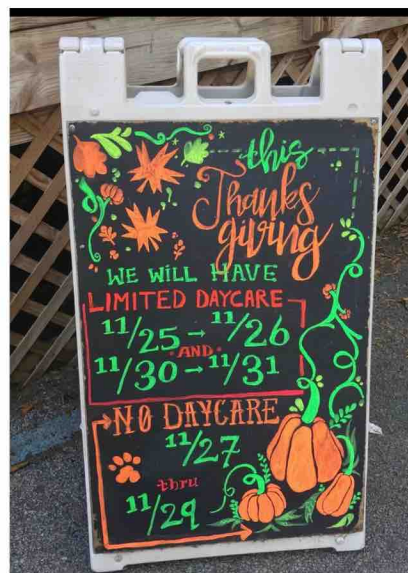 this
Thanks
giving
WE WILL HAVE
LIMITED DAYCARE
11/25 → 11/26
AND
11/30 → 11/31
NO DAYCARE
11/27
thru
11/29